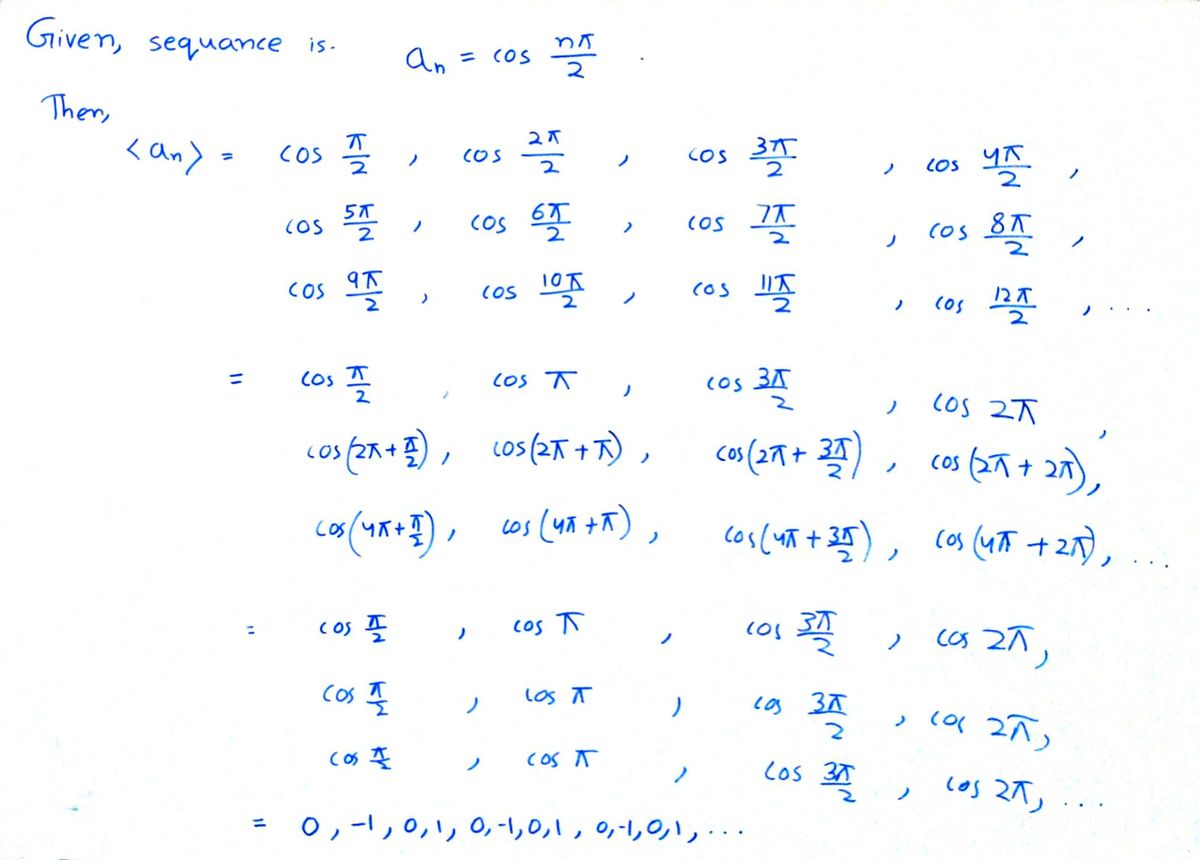 Given, sequance is. aₙ = cos nπ/2 .
Then,
<aₙ> = cos π/2 , cos 2π/2 , cos 3π/2 , cos 4π/2 ,
cos 5π/2 , cos 6π/2 , cos 7π/2 , cos 8π/2 ,
cos 9π/2 , cos 10π/2 , cos 11π/2 , cos 12π/2 , ...
= cos π/2 , cos π , cos 3π/2 , cos 2π ,
cos(2π+π/2) , cos(2π+π) , cos(2π+3π/2) , cos(2π+2π),
cos(4π+π/2) , cos(4π+π) , cos(4π+3π/2) , cos(4π+2π), ...
= cos π/2 , cos π , cos 3π/2 , cos 2π,
cos π/2 , cos π , cos 3π/2 , cos 2π,
cos π/2 , cos π , cos 3π/2 , cos 2π, ...
= 0, -1, 0, 1, 0, -1, 0, 1, 0, -1, 0, 1, ...